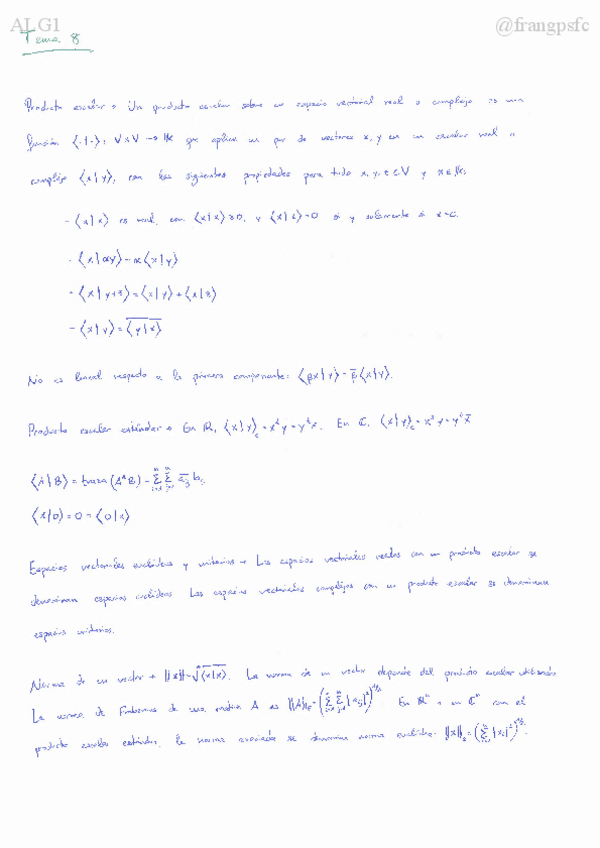 ALG1 @frangpsfc
Tema 8
Producto escalar → Un producto escalar sobre un espacio vectorial real o complejo es una
función ⟨·|·⟩: V×V → K que aplica un par de vectores x, y en un escalar real o
complejo ⟨x|y⟩, con las siguientes propiedades para todo x, y, z ∈ V y α ∈ K:
- ⟨x|x⟩ es real, con ⟨x|x⟩ ≥ 0, y ⟨x|x⟩ = 0 si y solamente si x = 0.
- ⟨x|αy⟩ = α⟨x|y⟩
- ⟨x|y+z⟩ = ⟨x|y⟩ + ⟨x|z⟩
- ⟨x|y⟩ = \overline{⟨y|x⟩}
No es lineal respecto a la primera componente: ⟨βx|y⟩ = β̄⟨x|y⟩.
Producto escalar estándar → En ℝ, ⟨x|y⟩ = xᵗy = yᵗx. En ℂ, ⟨x|y⟩ = x*y = yᵗx̄
⟨A|B⟩ = traza(A*B) = Σ Σ a̅ᵢⱼ bᵢⱼ
⟨x|0⟩ = 0 = ⟨0|x⟩
Espacios vectoriales euclídeos y unitarios → Los espacios vectoriales reales con un producto escalar se
denominan espacios euclídeos. Los espacios vectoriales complejos con un producto escalar se denominan
espacios unitarios.
Norma de un vector → ||x|| = √⟨x|x⟩. La norma de un vector depende del producto escalar utilizado.
La norma de Frobenius de una matriz A es ||A||_F = (Σ Σ |aᵢⱼ|²)^{1/2}. En ℝⁿ o en ℂⁿ con el
producto escalar estándar, la norma asociada se denomina norma euclídea: ||x||₂ = (Σ |xᵢ|²)^{1/2}.